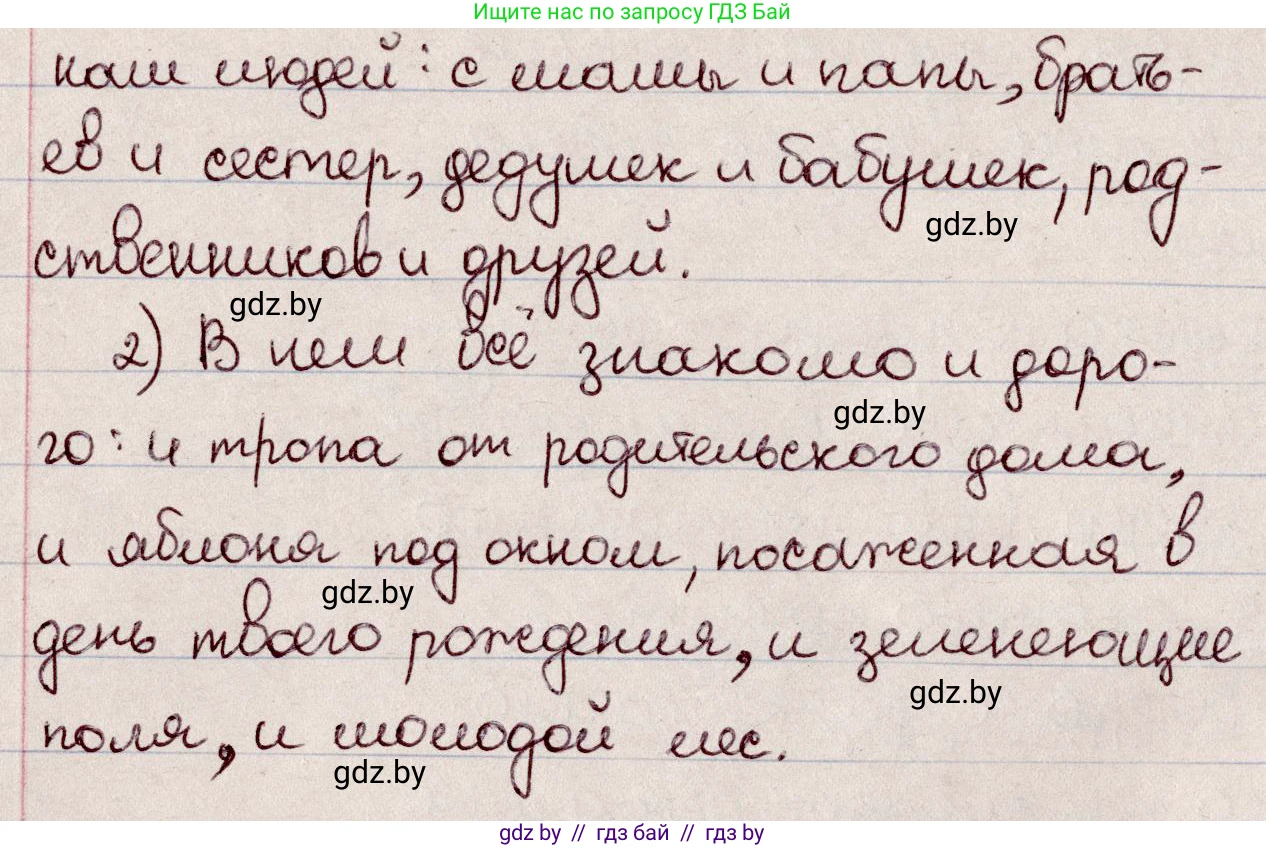 Ищите нас по запросу ГДЗ Бай
нам людей: с мамы и папы, брать-
ев и сестер, дедушек и бабушек, род-
gdz.by
ственников и друзей.
gdz.by
2) В нем всё знакомо и доро-
gdz.by
го: и тропа от родительского дома,
и яблоня под окном, посаженная в
gdz.by
день твоего рождения, и зеленеющие
gdz.by
поля, и молодой лес.
gdz.by
gdz by // гдз бай // гдз by